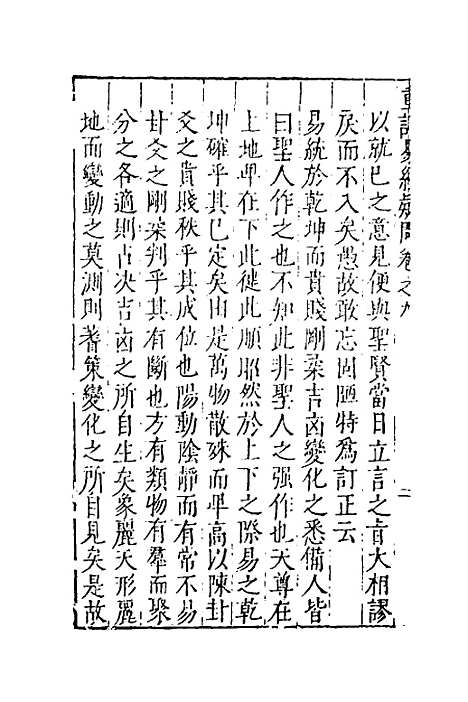 重訂易經疑問卷之九
二
以就已之意見便與聖賢當日立言之旨大相謬
戾而不入矣愚故敢忘固陋特爲訂正云
易統於乾坤而貴賤剛柔吉凶變化之悉備人皆
曰聖人作之也不知此非聖人之强作也天尊在
上地卑在下此徒此順耶然於上下之際易之乾
坤確乎其已定矣由是萬物散殊而卑高以陳卦
爻之貴賤秩乎其成位也陽動陰靜而有常不易
卦爻之剛柔判乎其有斷也方有類物有羣而聚
分之各適則占决吉凶之所自生矣象麗天形麗
地而變動之莫測則蓍策變化之所自見矣是故